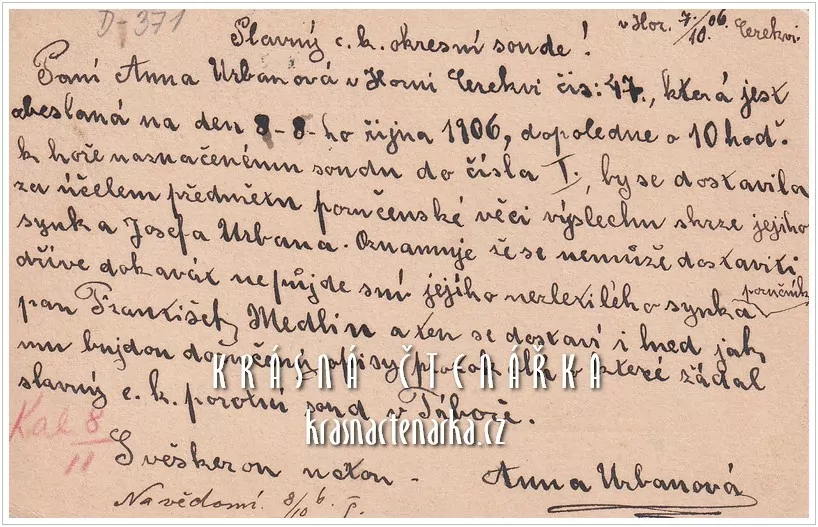 D-371
v Hor. 7./10. 06. Cerekvi
Slavný c. k. okresní soude!
Paní Anna Urbanová v Horní Cerekvi čís: 47., která jest
obeslaná na den 8-8-ho října 1906, dopoledne o 10 hoď.
k hoře naznačenému soudu do čísla I., by se dostavila
za účelem předmětu poručenské věci výslechu skrze jejího
synka Josefa Urbana. Oznamuje že se nemůže dostaviti
dříve dokavát nepůjde sní jejího nezletilého synka poručník
pan František Medlin a ten se dostaví i hned jak
mu bujdou doručený opisy protokolů o které žádal
slavný c. k. porotní soud v Táboře.
KRÁSNÁ ČTENÁŘKA
krasnactenarka.cz
Kal 8/11
S veškerou uctou -
Anna Urbanová
Na vědomí. 8/10 6. I.